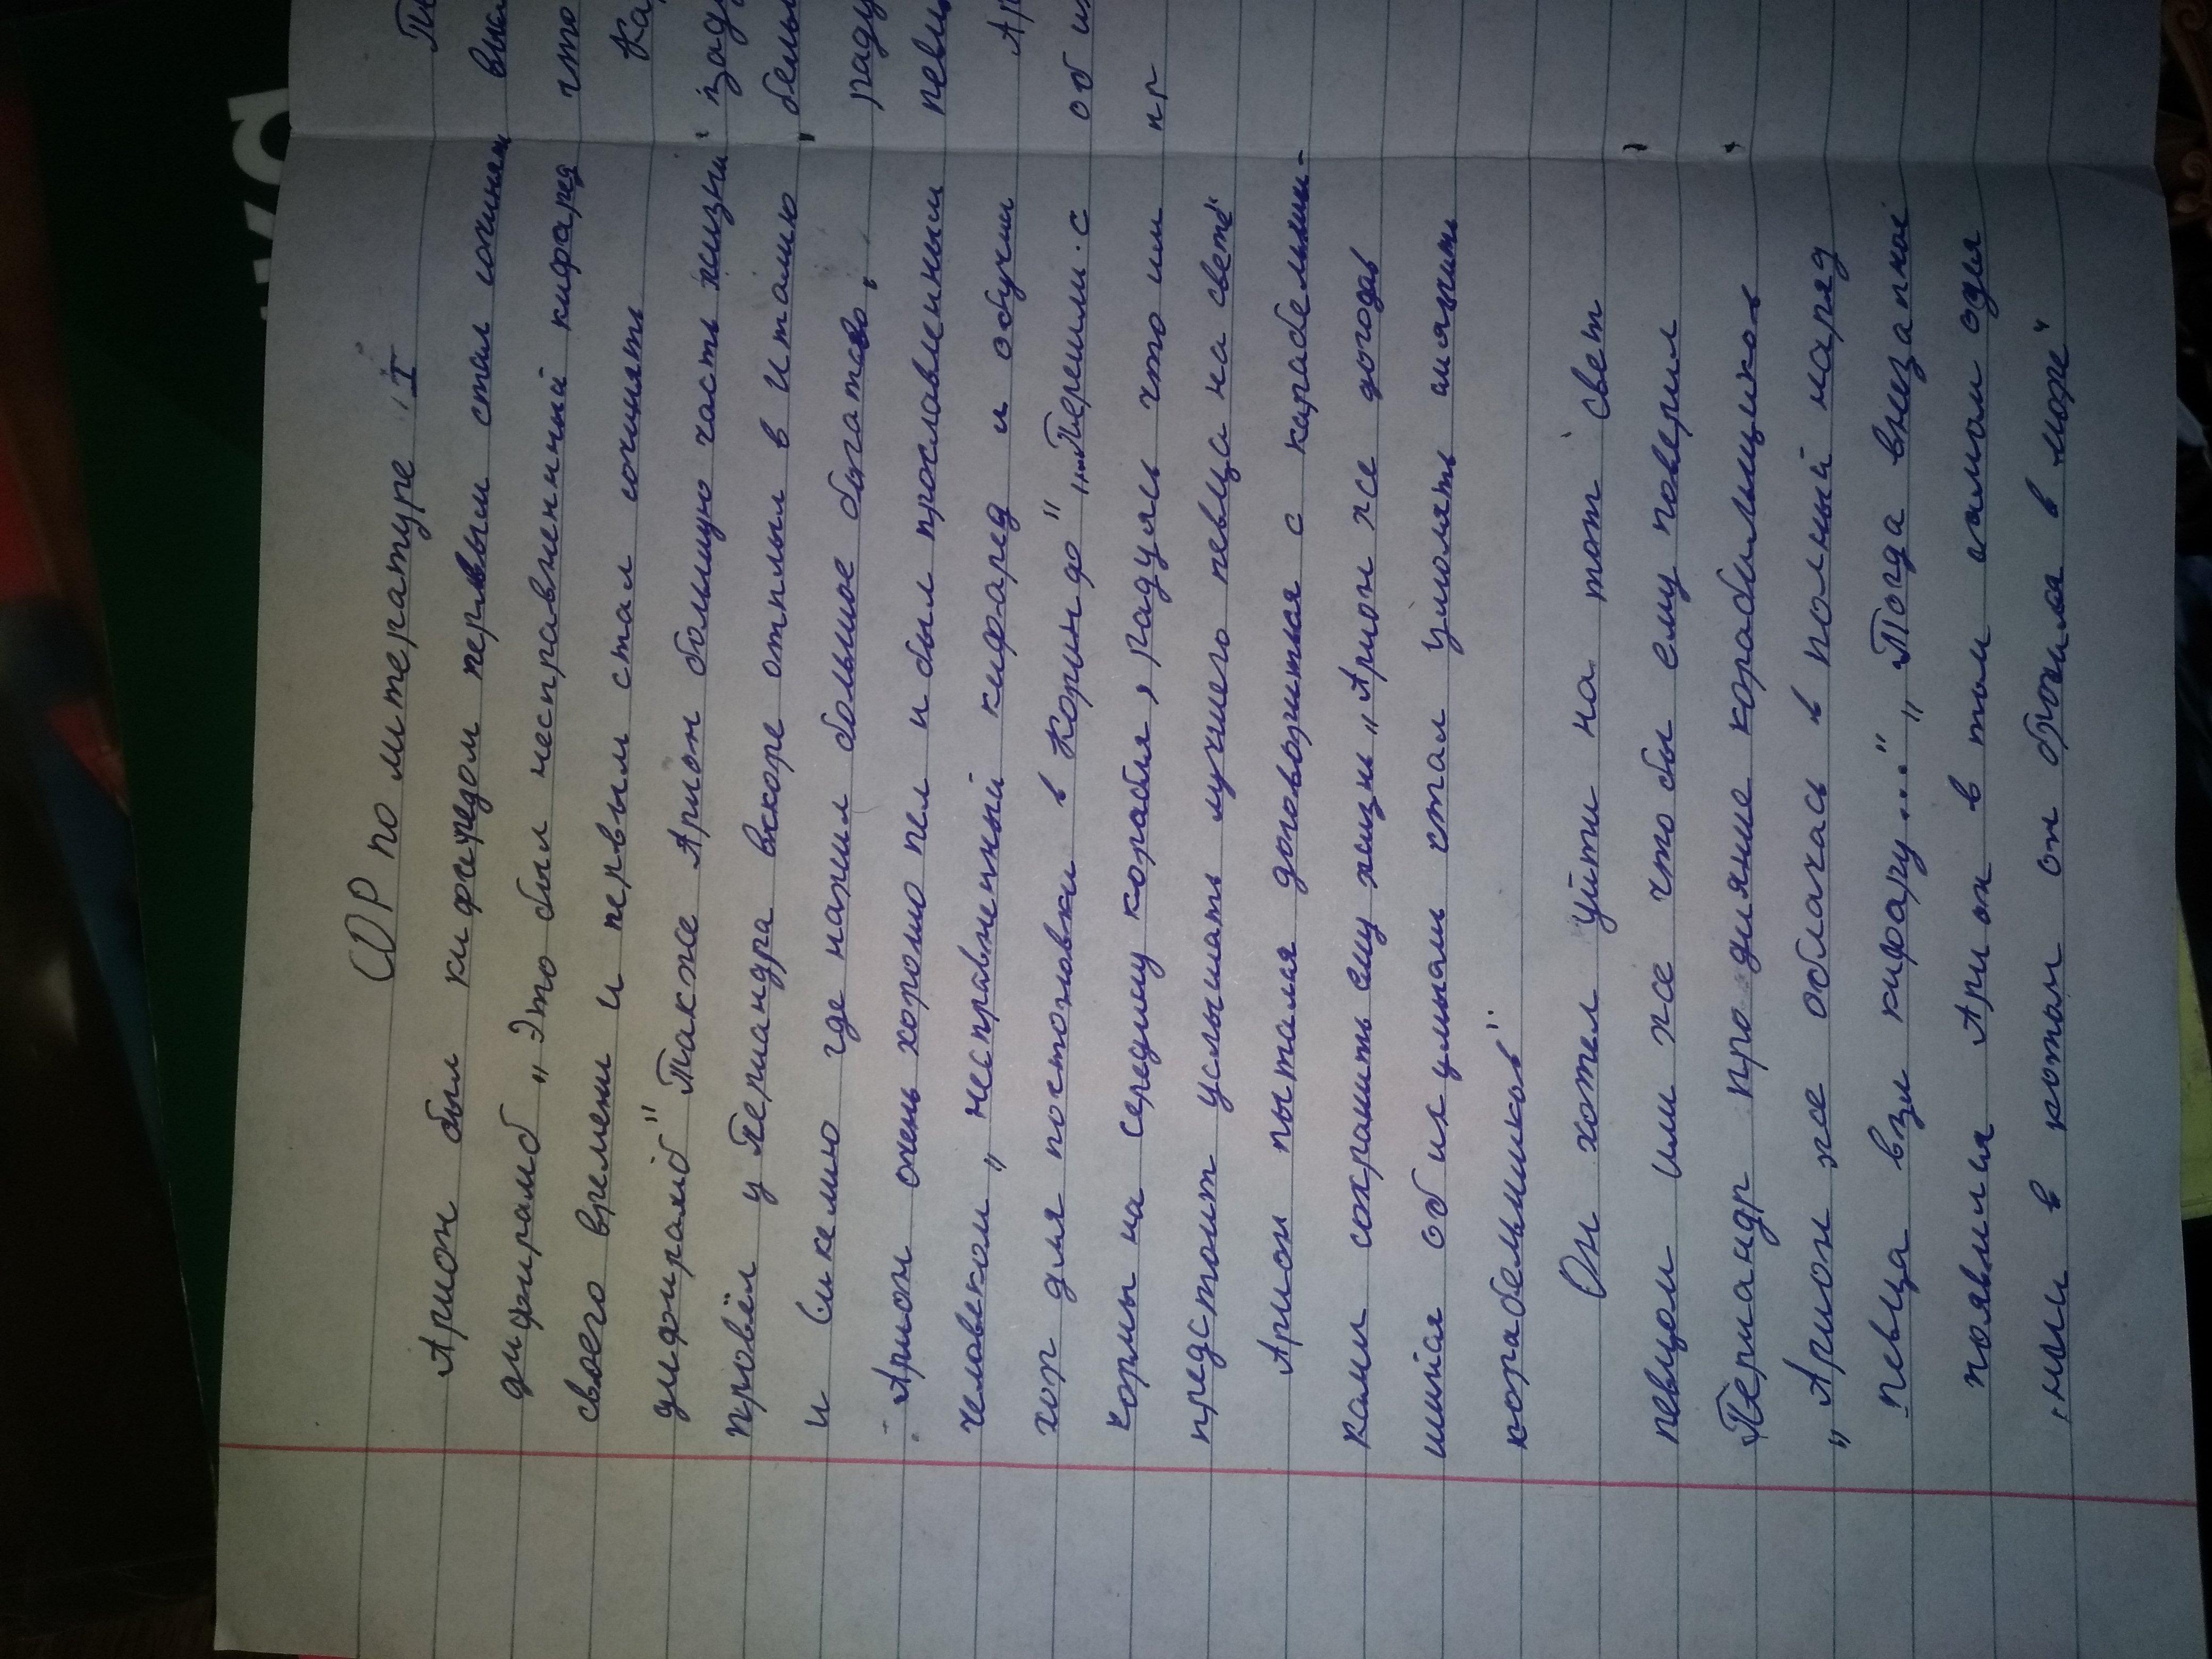 СОР по литературе I
Арион был кифаредом первым стал сочинять
дифирамб „Это был несправненный кифаред
своего времени и первым стал сочинять
дифирамб" Также Арион большую часть жизни
провёл у Периандра вскоре отплыл в Италию
и Сикелию где нажил большое богатство.
Арион очень хорошо пел и был прославленным
человеком „несправненный кифаред и обучил
хор для постоновки в Коринфо" „Перешли с
кормы на середину корабля, радуясь что им
предстоит услышать лучшего певца на свете"
Арион пытался договориться с карабельщи-
ками сохранить ему жизнь „Арион же догодав
шийся об их умысли стал умолять смягчить
корабельшиков"
Он хотел уйти на тот свет
певцом им же что бы ему поверил
Периандр про дияние корабильщиков
„Арион же облачась в полный наряд
певца взял кифару..." „Тогда внезапно
появился Арион в том самом одея
нии в котом он бросился в море"
Пе
вы
что
Ка
заду
бель
раду
певц
Ар
об их
пр